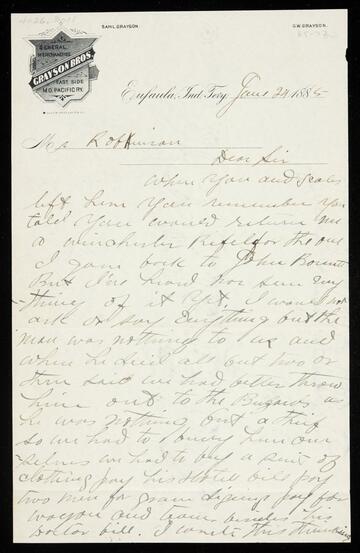 4026.8011
SAM L GRAYSON.
G.W. GRAYSON.
GENERAL
MERCHANDISE
GRAYSON BROS.
EAST SIDE
MO. PACIFIC RY.
Eufaula, Ind. Ter'y, June 24 1885
Mr Robbinson
Dear Sir
When you and
left him you remember you
told you would return me
a winchester Rifel for the one
I gave back to John
But I've heard nor seen any
thing of it yet, I would not
ask or say anything but the
man was nothing to us and
when he died all but two or
three said we had better throw
him out to the Buzards as
he was nothing but a thief
so we had to bury him our
selves we had to buy a suit of
clothing pay his Hotel bill pay
two men for grave diging pay for
wagon and team besides his
Doctor bill. I write this thinking